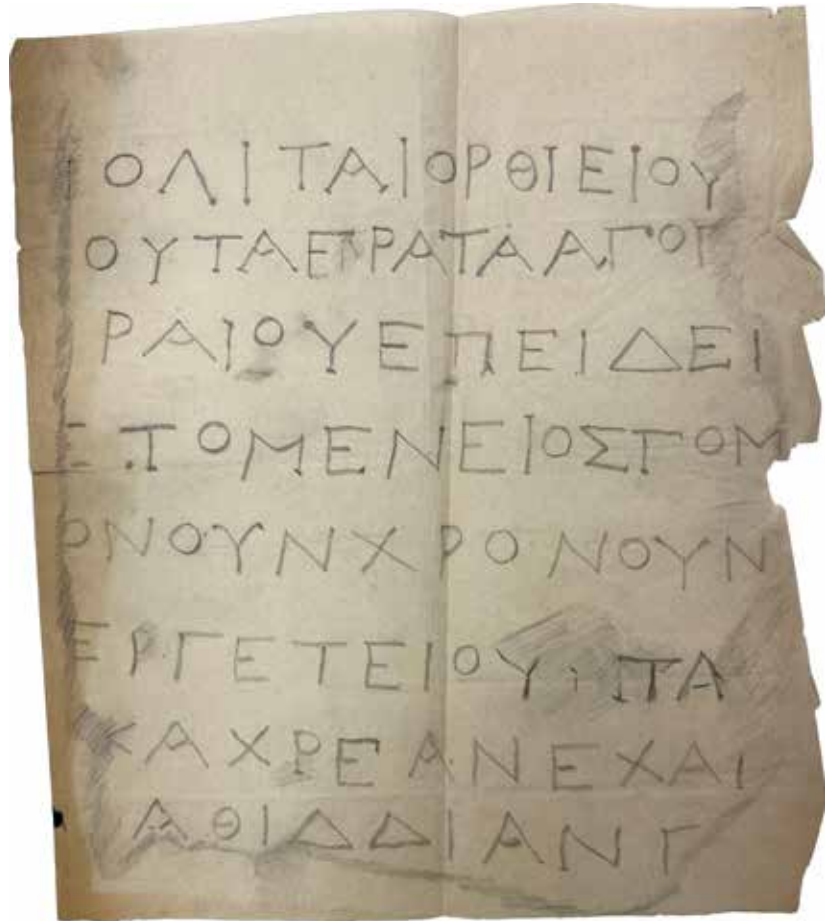 ΟΛΙΤΑΙΟΡΘΙΕΙΟΥ
ΟΥΤΑΕΓΡΑΤΑΑΓΟΓ
ΡΑΙΟΥΕΠΕΙΔΕΙ
ΕΤΟΜΕΝΕΙΟΣΓΟΜ
ΟΝΟΥΝΧΡΟΝΟΥΝ
ΕΡΓΕΤΕΙΟΥΠΑ
ΚΑΧΡΕΑΝΕΧΑΙ
ΑΘΙΔΔΙΑΝΓ